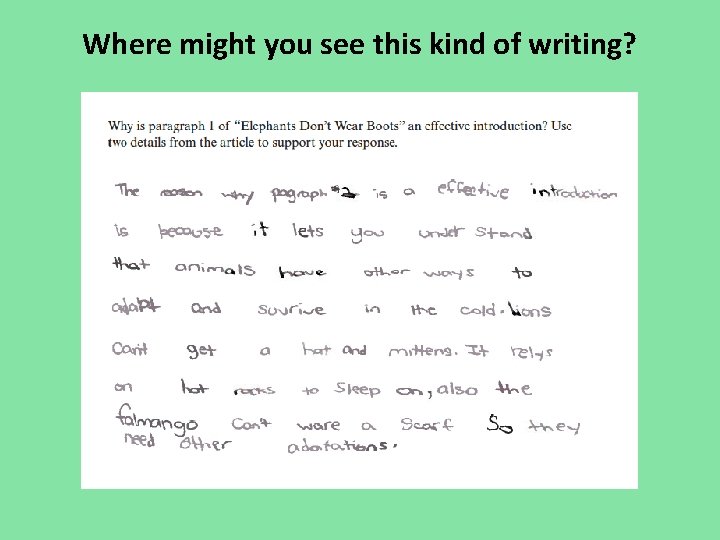 Where might you see this kind of writing?
Why is paragraph 1 of “Elephants Don’t Wear Boots” an effective introduction? Use
two details from the article to support your response.
The reason why pagraph #1 is a effective introduction
is because it lets you under stand
that animals have other ways to
adapt and suvrive in the cold. lions
Can't get a hat and mittens. It relys
on hot rocks to sleep on, also the
falmango Can't ware a scarf So they
need other adatations.